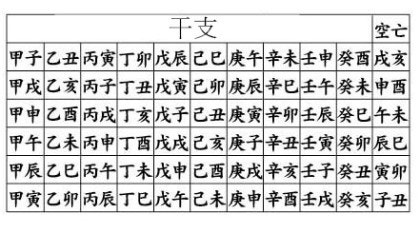 干支 空亡
甲子 乙丑 丙寅 丁卯 戊辰 己巳 庚午 辛未 壬申 癸酉 戌亥
甲戌 乙亥 丙子 丁丑 戊寅 己卯 庚辰 辛巳 壬午 癸未 申酉
甲申 乙酉 丙戌 丁亥 戊子 己丑 庚寅 辛卯 壬辰 癸巳 午未
甲午 乙未 丙申 丁酉 戊戌 己亥 庚子 辛丑 壬寅 癸卯 辰巳
甲辰 乙巳 丙午 丁未 戊申 己酉 庚戌 辛亥 壬子 癸丑 寅卯
甲寅 乙卯 丙辰 丁巳 戊午 己未 庚申 辛酉 壬戌 癸亥 子丑